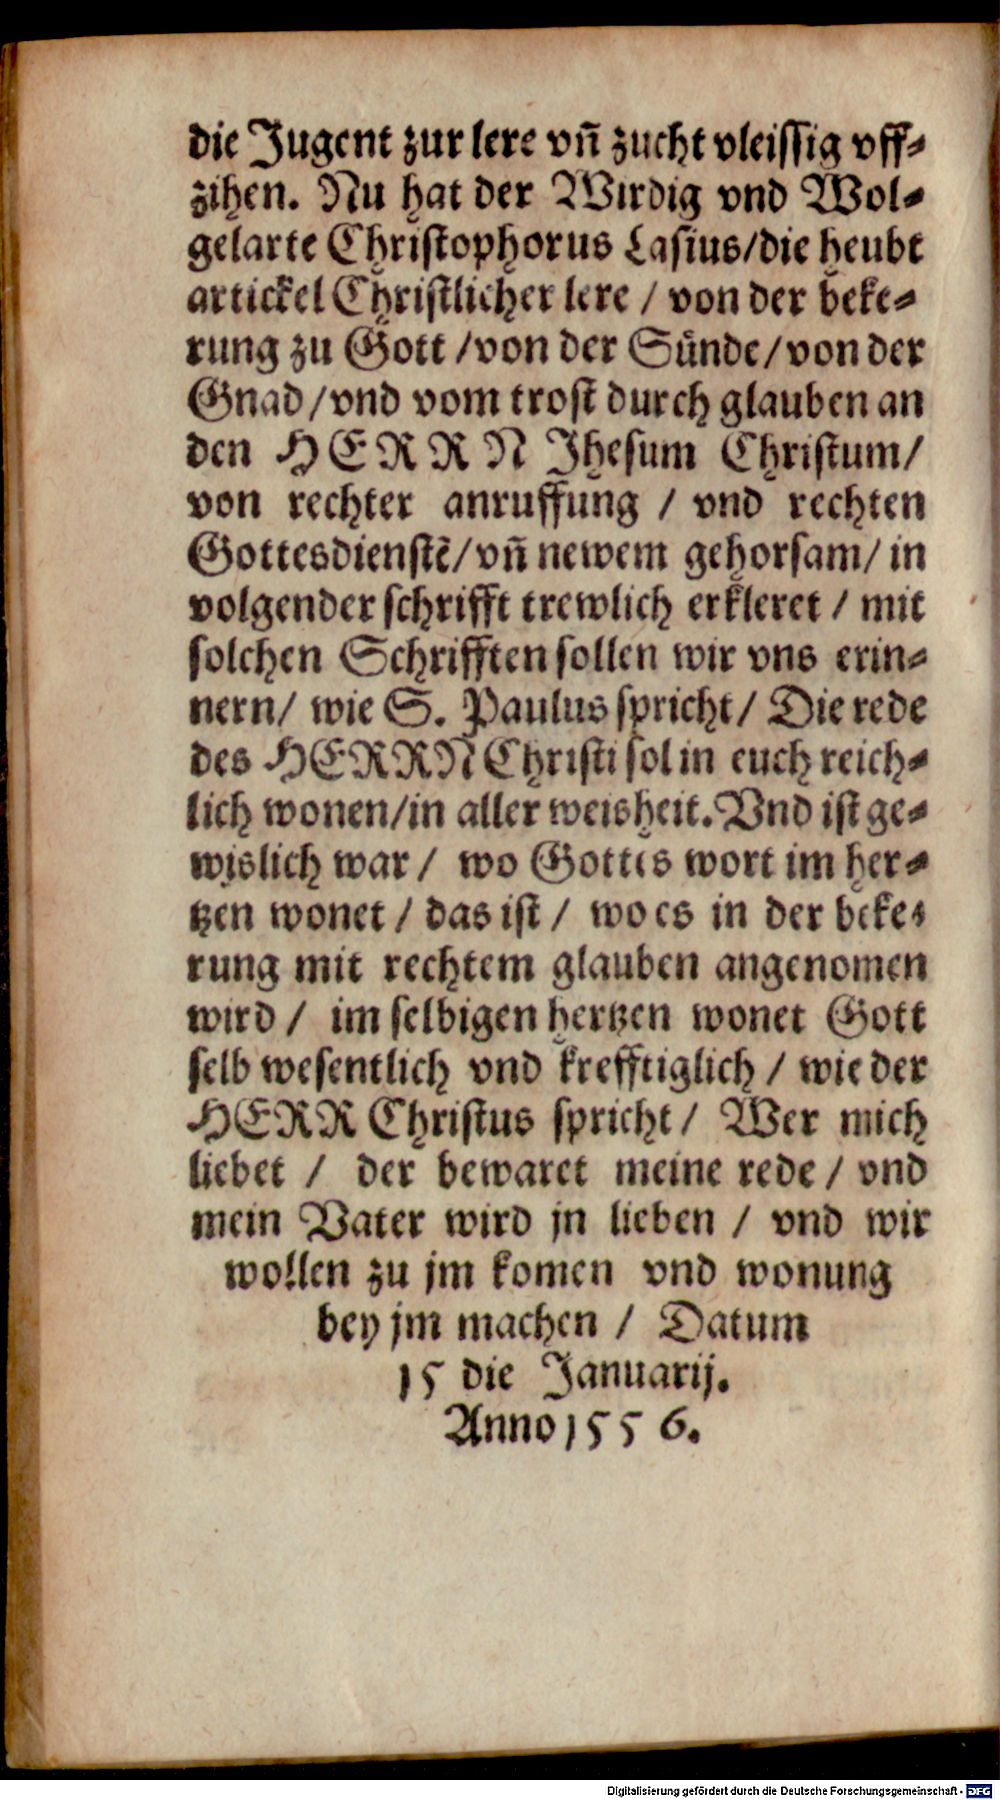 die Jugent zur lere vn̄ zucht vleissig vff-
zihen. Nu hat der Wirdig vnd Wol-
gelarte Christophorus Lasius/die heubt
artickel Christlicher lere / von der beke-
rung zu Gott /von der Sünde/von der
Gnad/vnd vom trost durch glauben an
den HERRN Jhesum Christum/
von rechter anruffung / vnd rechten
Gottesdienstē/vn̄ newem gehorsam/ in
volgender schrifft trewlich erkleret / mit
solchen Schrifften sollen wir vns erin-
nern/ wie S. Paulus spricht/ Die rede
des HERRN Christi sol in euch reich-
lich wonen/in aller weisheit. Vnd ist ge-
wislich war / wo Gottes wort im her-
tzen wonet / das ist / wo es in der beke-
rung mit rechtem glauben angenomen
wird / im selbigen hertzen wonet Gott
selb wesentlich vnd krefftiglich / wie der
HERR Christus spricht / Wer mich
liebet / der bewaret meine rede / vnd
mein Vater wird jn lieben / vnd wir
wollen zu jm komen vnd wonung
bey jm machen / Datum
15 die Januarij.
Anno 1556.
Digitalisierung gefördert durch die Deutsche Forschungsgemeinschaft - DFG